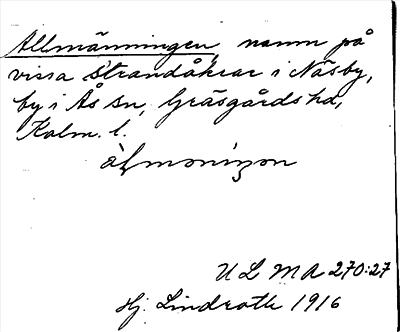 Allmänningen, namn på
vissa strandåkrar i Näsby,
by i Ås sn, Gräsgårds hd,
Kalm. l.
ULMA 270:27
Hj. Lindroth 1916